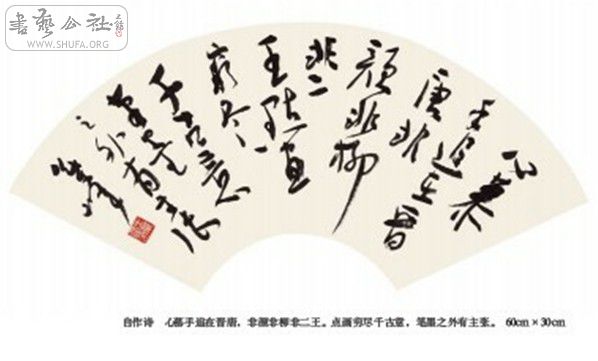 書藝公社
WWW.SHUFA.ORG
心慕
手追在晋
唐非
颜非柳
非二
王點畫
穷尽
千古意
笔墨
之外有主张
自作诗 心慕手追在晋唐，非颜非柳非二王。点画穷尽千古意，笔墨之外有主张。 60cm×30cm